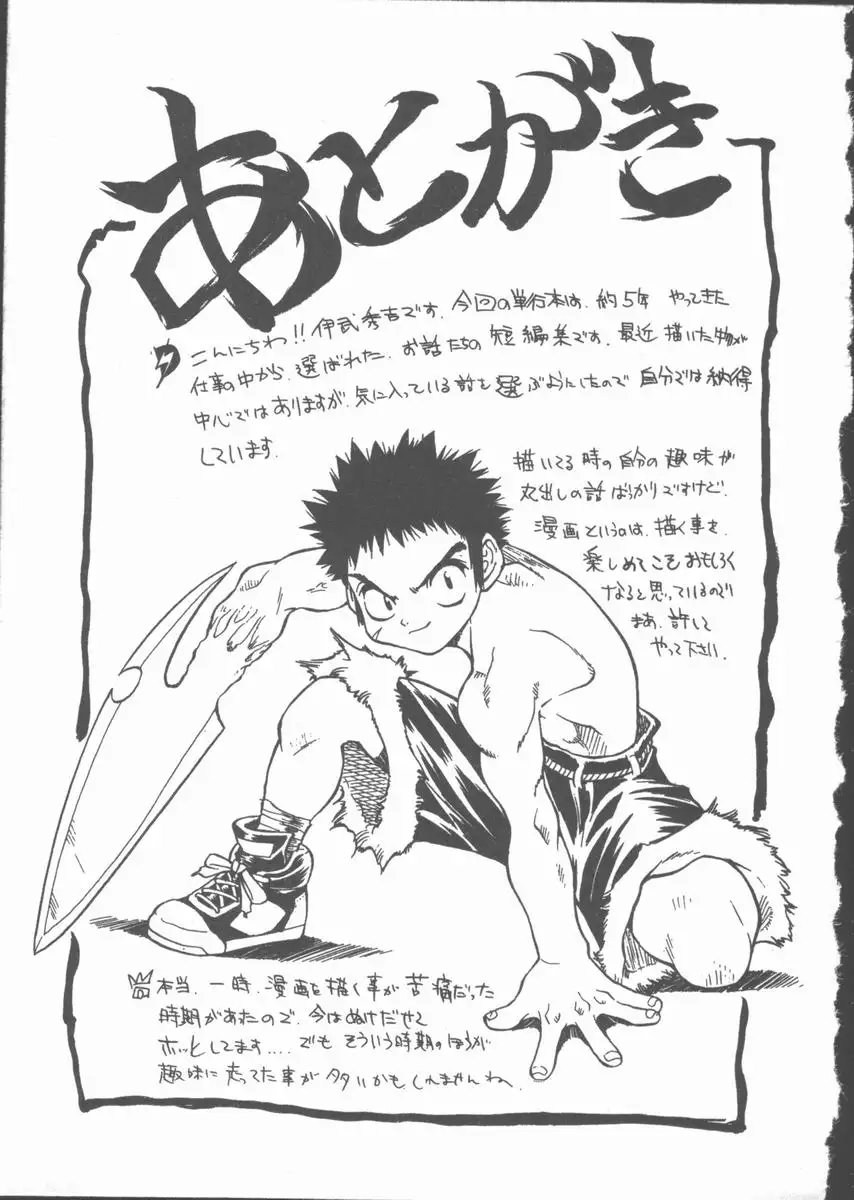 あとがき
こんにちわ!!伊武秀吉です。今回の単行本は、約5年 やってきた
仕事の中から、選ばれた、お話たちの短編集です。最近描いた物が
中心ではありますが、気に入っている話を選ぶようにしたので自分では納得
しています。
描いてる時の自分の趣味が
丸出しの話ばっかりですけど、
漫画というのは、描く事を、
楽しめてこそおもしろく
なると思っているので
まぁ、許して
やって下さい。
本当、一時、漫画を描く事が苦痛だった
時期があたので、今はぬけだせて
ホッとしてます....でもそういう時期のほうが
趣味に走ってた事が多いかもしれませんね。